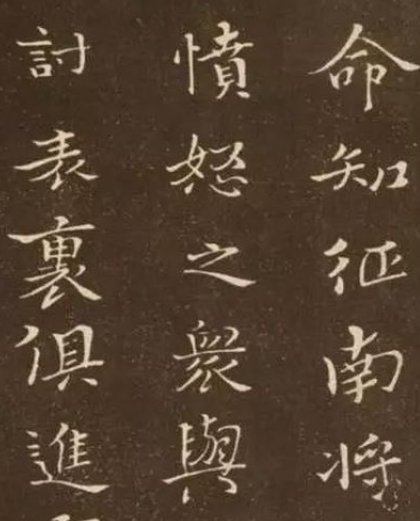 命知征南将
憤怒之衆與
討表裏俱進